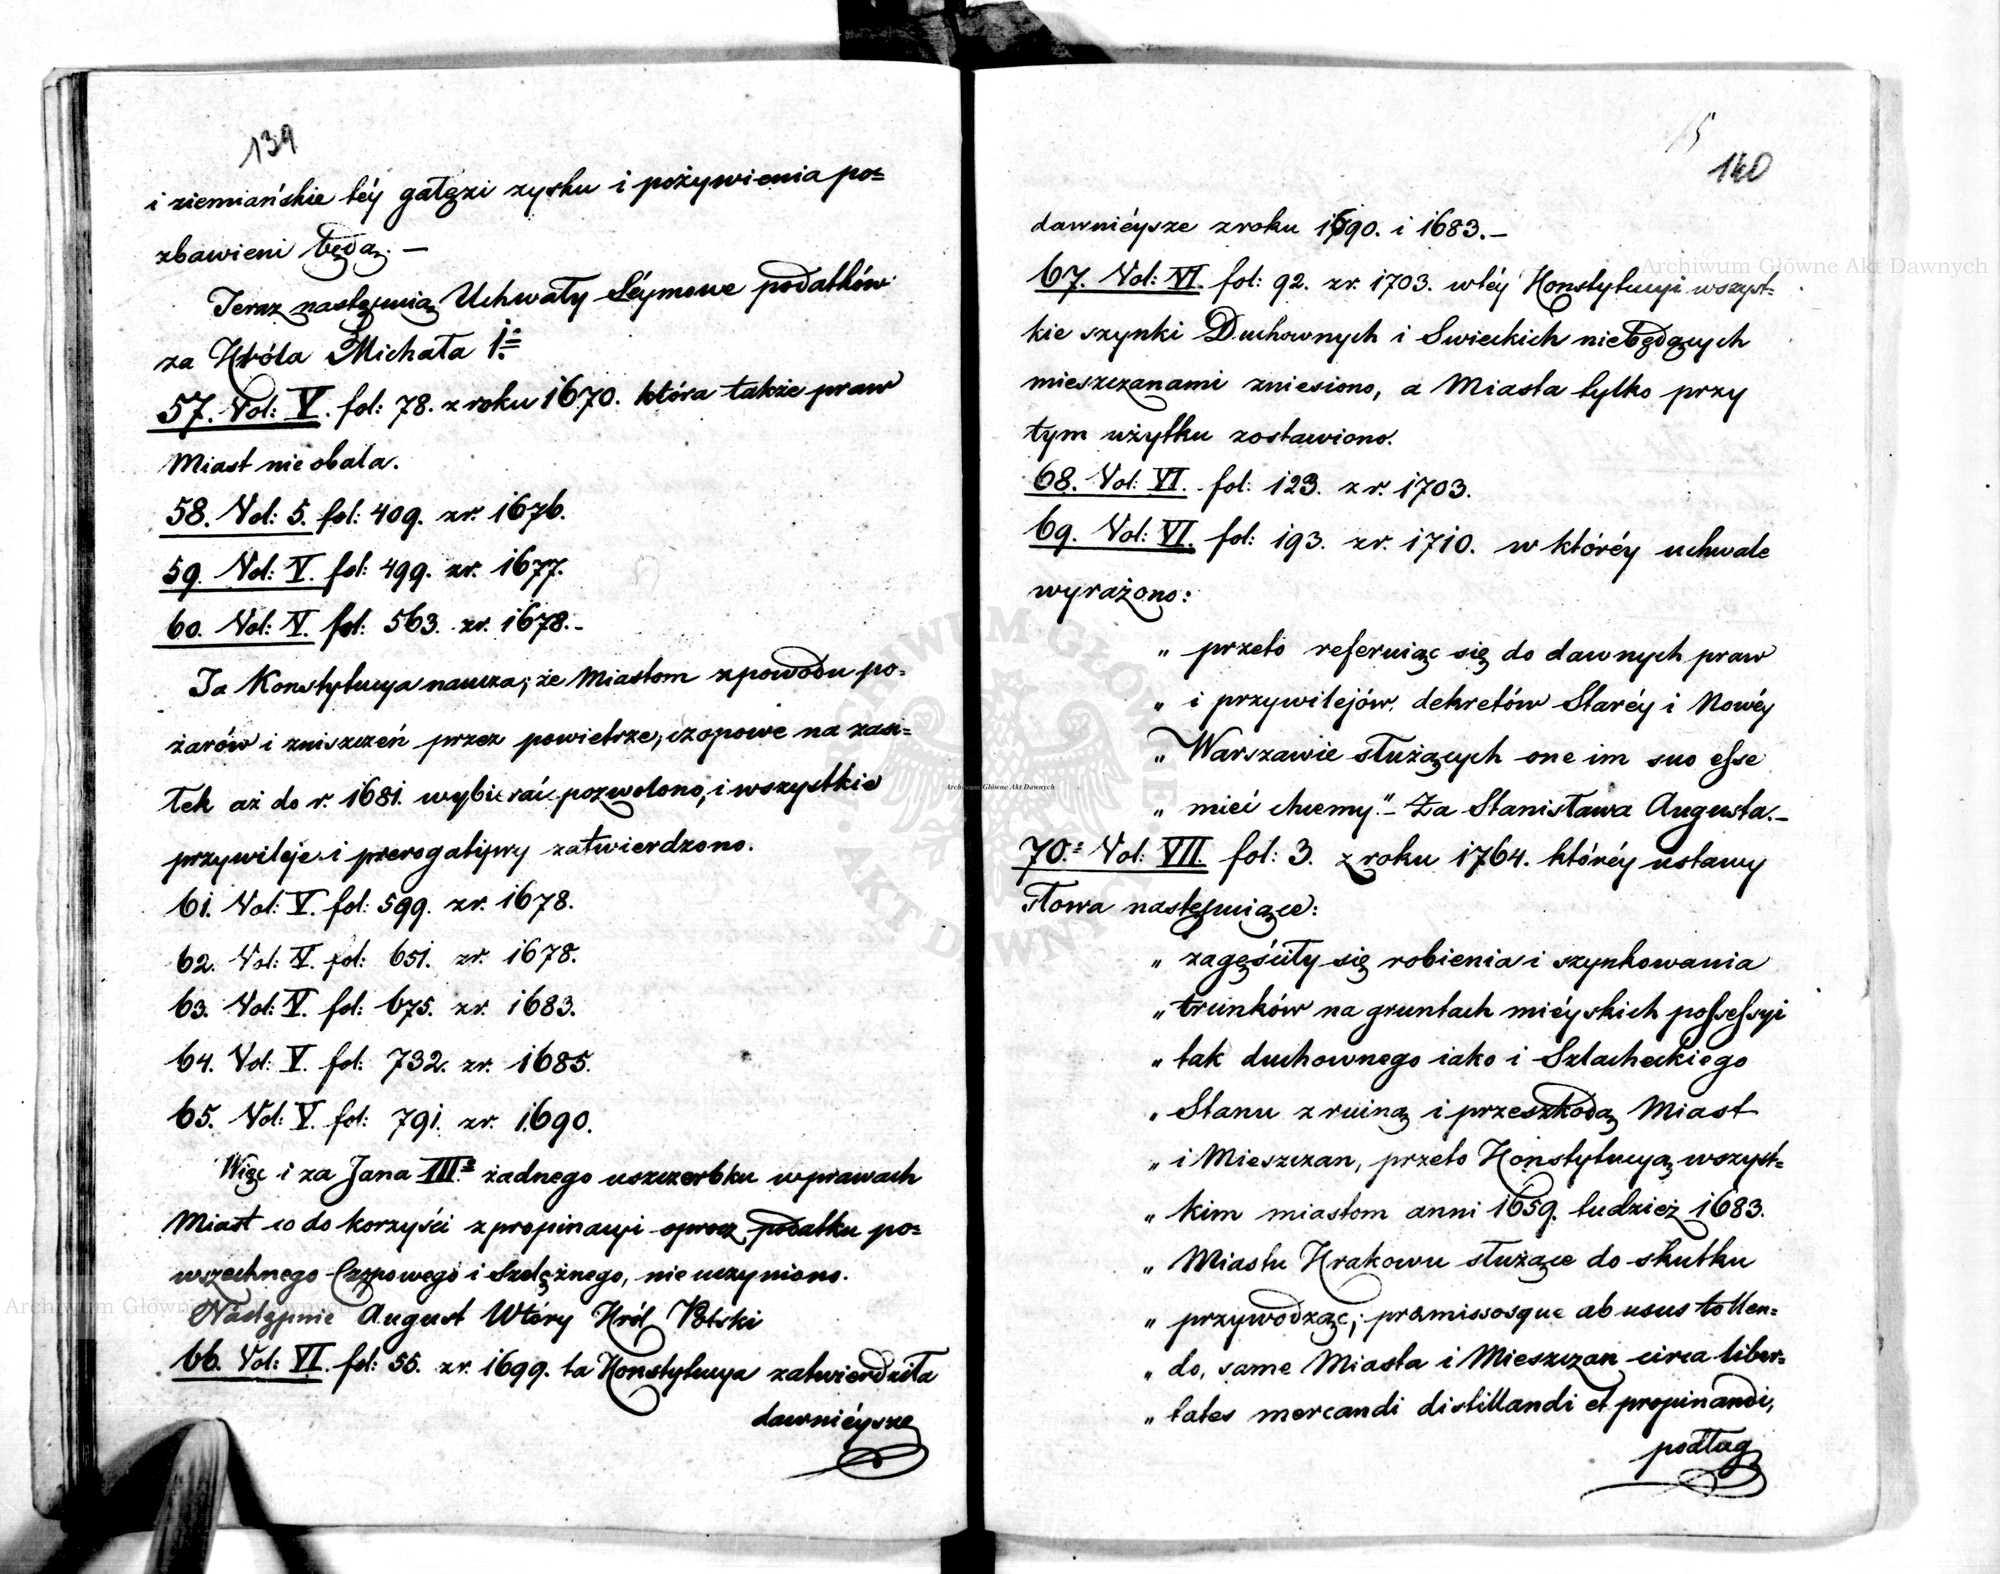 139
i ziemiańskie téy gałęzi zysku i pożywienia po=
zbawieni będą. —
Teraz następuią Uchwały Séymowe podatków
za Króla Michała I.
57. Vol: V. fol: 78. z roku 1670. która także praw
Miast nie obala.
58. Vol: 5. fol: 409. zr. 1676.
59. Vol: V. fol: 499. zr. 1677.
60. Vol: V. fol: 563. zr. 1678.-
Ta Konstytucya naucza, że Miastom z powodu po=
żarów i zniszczeń przez powietrze, czopowe na zasi=
łek aż do r. 1681. wybierać pozwolono, i wszystkie
przywileje i prerogatywy zatwierdzono.
61. Vol: V. fol: 599. zr. 1678.
62. Vol: V. fol: 651. zr. 1678.
63. Vol: V. fol: 675. zr. 1683.
64. Vol: V. fol: 732. zr. 1685.
65. Vol: V. fol: 791. zr. 1690.
Więc i za Jana III.o żadnego uszczerbku w prawach
Miast co do korzyści z propinacyi oprócz podatku po=
wszechnego Czopowego i Szelężnego, nie uczyniono.
Następnie August Wtóry Król Polski
66. Vol: VI. fol: 55. zr. 1699. ta Konstytucya zatwierdziła
dawniéysze
15
140
dawniéysze z roku 1690. i 1683.—
67. Vol: VI. fol: 92. zr. 1703. w téy Konstytucyi wszyst=
kie szynki Duchownych i Swieckich niebędących
mieszczanami zniesiono, a Miasta tylko przy
tym użytku zostawiono.
68. Vol: VI. fol: 123. z r. 1703.
69. Vol: VI. fol: 193. zr. 1710. w któréy uchwale
wyrażono:
„ przeto referuiąc się do dawnych praw
„ i przywilejów, dekretów Staréy i Nowéy
„ Warszawie służących one im suo esse
„ mieć chcemy."- Za Stanisława Augusta.-
70. Vol: VII. fol: 3. z roku 1764. któréy ustawy
słowa następuiące:
„ zagęściły się robienia i szynkowania
„ trunków na gruntach miéyskich possessyi
„ tak duchownego iako i Szlacheckiego
„ Stanu z ruiną i przeszkodą Miast
„ i Mieszczan, przeto Konstytucyą wszyst=
„ kim miastom anni 1659. tudzież 1683.
„ Miastu Krakowu służące do skutku
„ przywodząc, pramissosque abusus tollen=
„ do, same Miasta i Mieszczan circa liber=
„ tates mercandi distillandi et propinandi,
podług
Archiwum Główne Akt Dawnych
Archiwum Główne Akt Dawnych
Archiwum Główne Akt Dawnych
ARCHIWUM GŁÓWNE AKT DAWNYCH